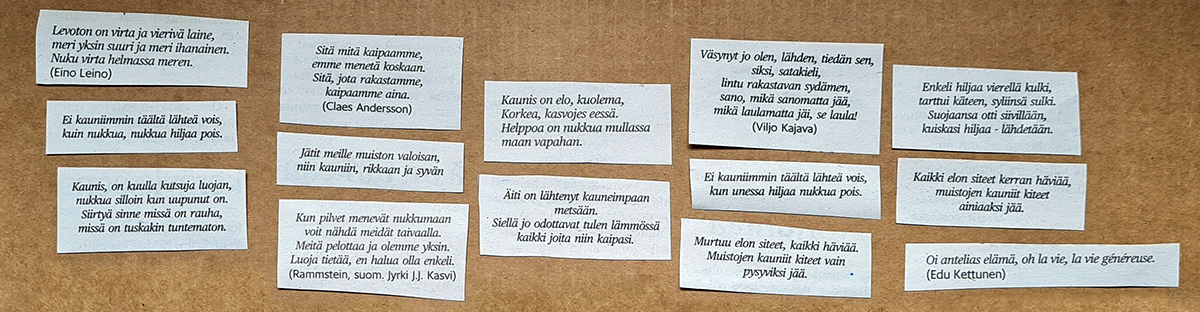 Levoton on virta ja vierivä laine,
meri yksin suuri ja meri ihanainen.
Nuku virta helmassa meren.
(Eino Leino)
Ei kauniimmin täältä lähteä vois,
kuin nukkua, nukkua hiljaa pois.
Kaunis, on kuulla kutsuja luojan,
nukkua silloin kun uupunut on.
Siirtyä sinne missä on rauha,
missä on tuskakin tuntematon.
Sitä mitä kaipaamme,
emme menetä koskaan.
Sitä, jota rakastamme,
kaipaamme aina.
(Claes Andersson)
Jätit meille muiston valoisan,
niin kauniin, rikkaan ja syvän
Kun pilvet menevät nukkumaan
voit nähdä meidät taivaalla.
Meitä pelottaa ja olemme yksin.
Luoja tietää, en halua olla enkeli.
(Rammstein, suom. Jyrki J.J. Kasvi)
Kaunis on elo, kuolema,
Korkea, kasvojes eessä.
Helppoa on nukkua mullassa
maan vapahan.
Äiti on lähtenyt kauneimpaan
metsään.
Siellä jo odottavat tulen lämmössä
kaikki joita niin kaipasi.
Väsynyt jo olen, lähden, tiedän sen,
siksi, satakieli,
lintu rakastavan sydämen,
sano, mikä sanomatta jää,
mikä laulamatta jäi, se laula!
(Viljo Kajava)
Ei kauniimmin täältä lähteä vois,
kun unessa hiljaa nukkua pois.
Murtuu elon siteet, kaikki häviää.
Muistojen kauniit kiteet vain
pysyviksi jää.
Enkeli hiljaa vierellä kulki,
tarttui käteen, syliinsä sulki.
Suojaansa otti siivillään,
kuiskasi hiljaa - lähdetään.
Kaikki elon siteet kerran häviää,
muistojen kauniit kiteet
ainiaaksi jää.
Oi antelias elämä, oh la vie, la vie généreuse.
(Edu Kettunen)